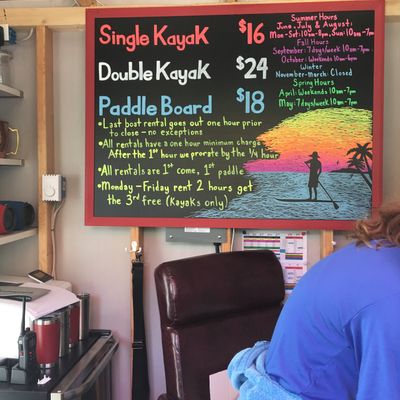 Single Kayak $16
Double Kayak $24
Paddle Board $18
• Last boat rental goes out one hour prior
to close - no exceptions
• All rentals have a one hour minimum charge
After the 1st hour we prorate by the 1/4 hour
• All rentals are 1st come, 1st paddle
• Monday - Friday rent 2 hours get
the 3rd free (Kayaks only)
Summer Hours
June, July & August:
Mon-Sat: 10am-8pm, Sun: 10am-7pm
Fall Hours
September: 7 days/week 10am-7pm
October: Weekends 10am-6pm
Winter
November-March: Closed
Spring Hours
April: Weekends 10am-7pm
May: 7 days/week 10am-7pm